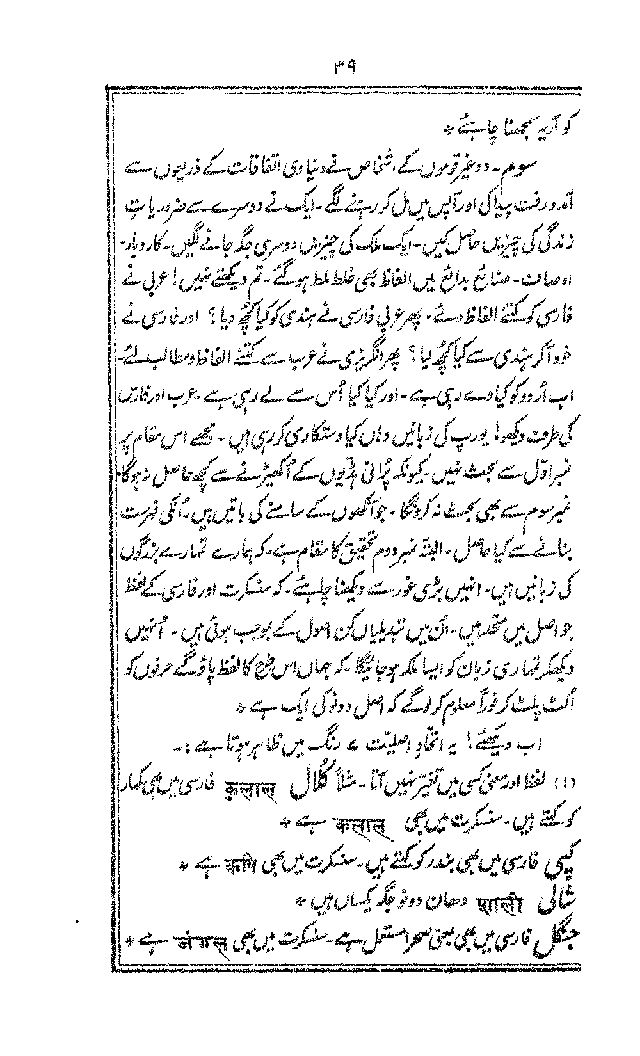 ۳۹
کو آریہ سمجھنا چاہئے *
سوم۔ دو غیر قوموں کے اشخاص نے دنیاوی اتفاقات کے ذریعوں سے
آمدورفت پیدا کی اور آپس میں مل کر رہنے لگے۔ ایک نے دوسرے سے ضروریات
زندگی کی چیزیں حاصل کیں۔ ایک ملک کی چیزیں دوسری جگہ جانے لگیں۔ کاروبار۔
اوصاف۔ صنائع بدائع میں الفاظ بھی خلط ملط ہو گئے۔ تم دیکھتے نہیں! عربی نے
فارسی کو کتنے الفاظ دئے۔ پھر عربی فارسی نے ہندی کو کیا کچھ دیا؟ اور فارسی نے
خود آکر ہندی سے کیا کچھ لیا؟ پھر انگریزی نے عرب سے کتنے الفاظ و مطالب لئے۔
اب اُردو کو کیا دے رہی ہے۔ اور کیا کیا اُس سے لے رہی ہے۔ عرب اور فارس
کی طرف دیکھو! یورپ کی زبانیں وہاں کیا دستکاری کر رہی ہیں۔ مجھے اس مقام پر
نمبر اوّل سے بحث نہیں۔ کیونکہ پُرانی ہڈیوں کے اُکھیڑنے سے کچھ حاصل نہ ہوگا۔
نمبر سوم سے بھی بحث نہ کرونگا۔ جو آنکھوں کے سامنے کی باتیں ہیں۔ اُنکی فہرست
بنانے سے کیا حاصل۔ البتہ نمبر دوم تحقیق کا مقام ہے۔ کہ ہمارے تمہارے بزرگوں
کی زبانیں ہیں۔ انہیں بڑی غور سے دیکھنا چاہئے۔ کہ سنسکرت اور فارسی کے لفظ
جو اصل میں متحد ہیں۔ اُن میں تبدیلیاں کن اصول کے بموجب ہوئی ہیں۔ اُنہیں
دیکھکر تمہاری زبان کو ایسا ملکہ ہو جائیگا۔ کہ جہاں اس طرح کا لفظ پاؤ گے حرفوں کو
اُلٹ پلٹ کر فوراً معلوم کر لو گے کہ اصل دونو کی ایک ہے *
اب دیکھئے! یہ اتحاد اصلیّت ۶ رنگ میں ظاہر ہوتا ہے:۔
(۱) لفظ اور معنی کسی میں تغیّر نہیں آتا۔ مثلاً کُلال कुलाल فارسی میں بھی کمہار
کو کہتے ہیں۔ سنسکرت میں بھی कलाल ہے *
کپی فارسی میں بھی بندر کو کہتے ہیں۔ سنسکرت میں بھی कपि ہے *
شالی शाली دھان دونو جگہ یکساں ہیں *
جنگل فارسی میں بھی بمعنی صحرا مستعمل ہے۔ سنسکرت میں بھی जंगल ہے *